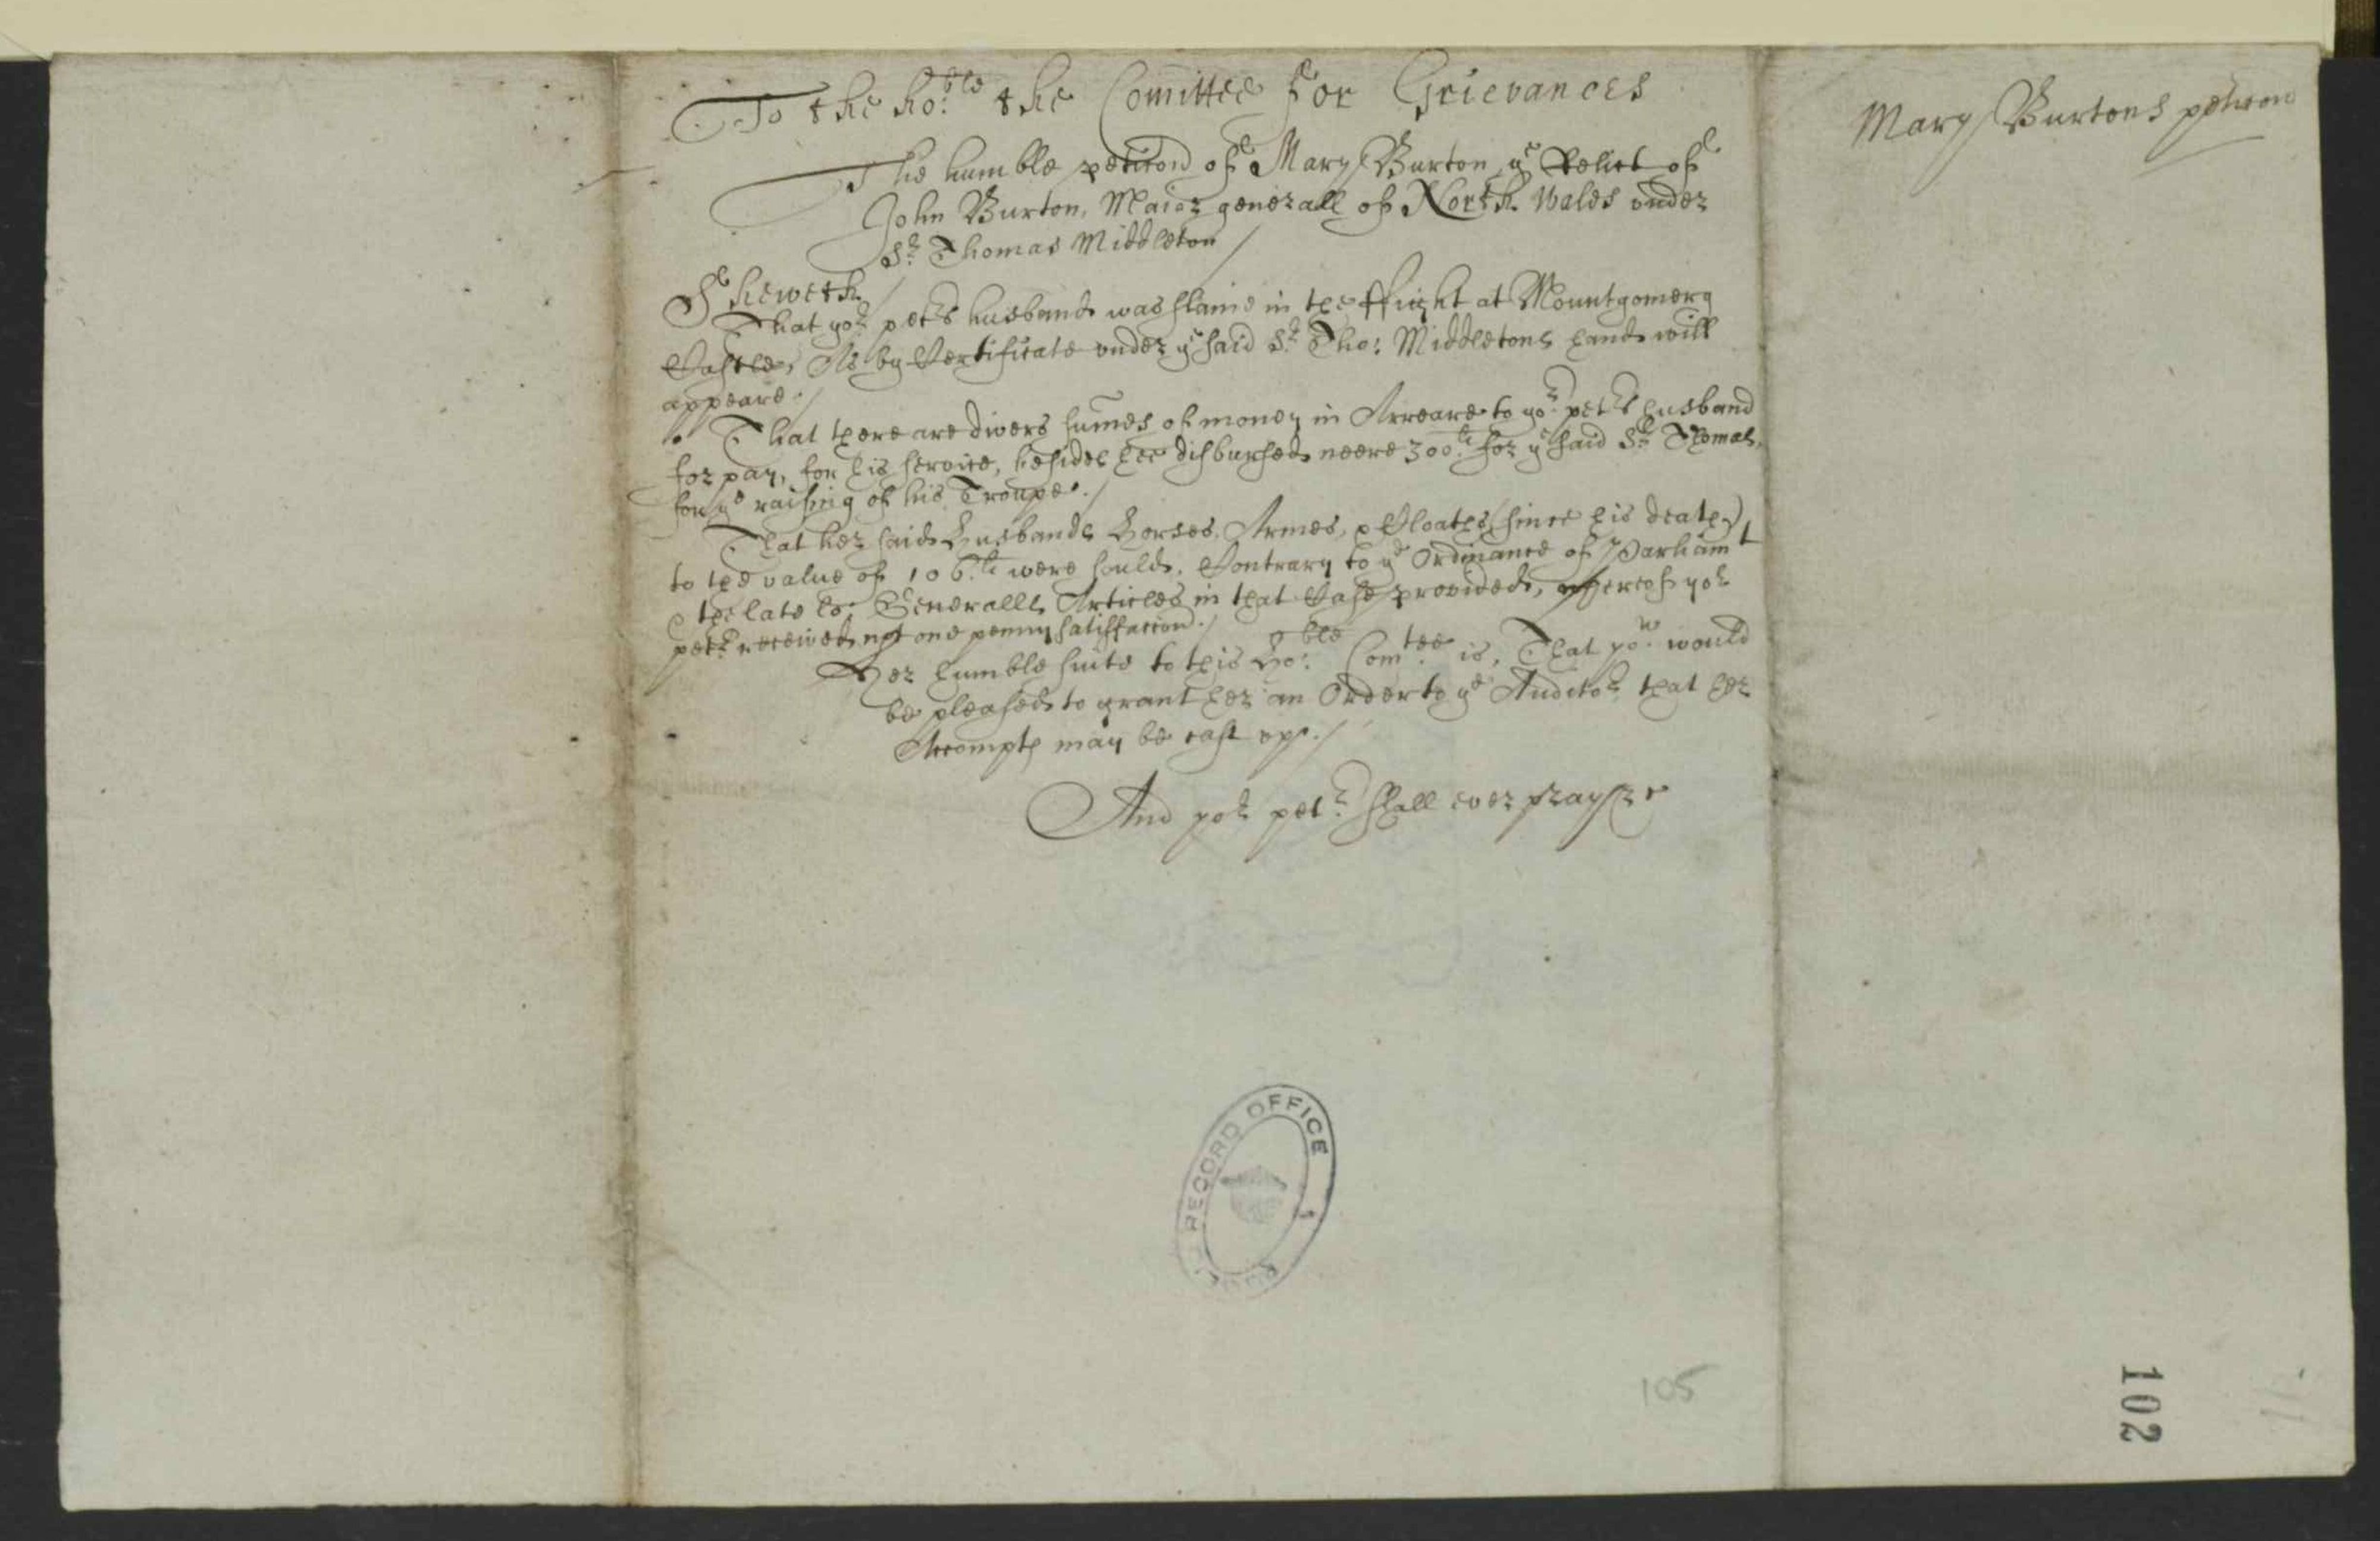 To the ho:ble the Comittee for Grievances
The humble peticon of Mary Burton ye Relict of
John Burton, Maior generall of North Wales vnder
Sr. Thomas Middleton /
Sheweth /
That yor. petrs husband was slaine in the ffight at Mountgomery
Castle, As by Certificate vnder ye said Sr. Tho: Middletons hand will
appeare. /
That there are divers sumes of money in Arreare to yor. petrs husband
for pay, for his service, besides hee disbursed neere 300li for ye said Sr. Thomas,
for ye raising of his Troupe. /
That her said Husbands Horses, Armes, & Cloathes (since his death)
to the value of 106.li were sould, Contrary to ye Ordinance of Parliamt
& the late Lo: Generalls Articles in that Case provided, whereof yor
petr. received not one penny satisfaccon. /
Her humble suite to this Ho:ble Comtee is, That you would
be pleased to grant her an Order to ye Auditor. that her
Accompts may be cast vpp. /
And yor petr. shall ever pray &c
Mary Burtons peticon
RECORD OFFICE
105
102